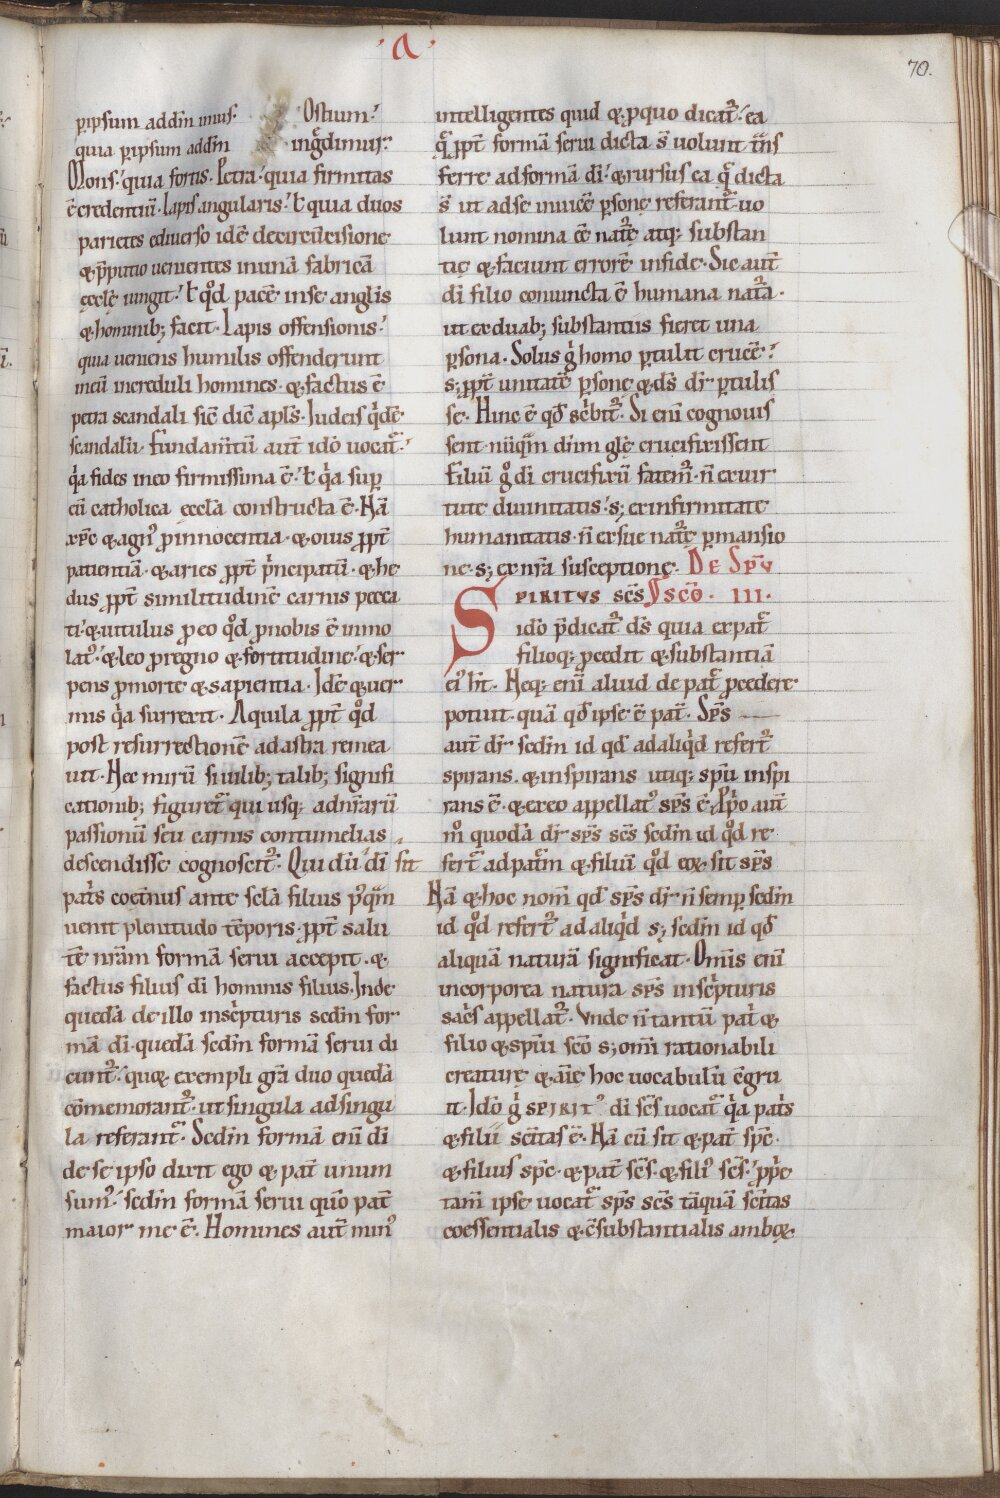 ·a·
70.
p ipsum addm̄ imus· Ostium·'
quia p ipsum addm̄ ingᵃdimur·'
Mons·' quia fortis· Petra·' quia firmitas
ē credentiū· Lapis angularis·' ł quia duos
parietes ediuerso idē decircūcisione
& p̄putio uenientes inunā fabricā
ęcclę̄ iungit·' ł qͦd pacē inse anglis
& hominib; facit· Lapis offensionis·'
quia ueniens humilis offenderunt
ineū increduli homines· & factus ē
petra scandali sic̄ dic̄ apl̄s· Iudeis qͥdē
scandalū· Fundam̄tū aut̄ idō uocat᷑·'
qͥa fides ineo firmissima ē·' ł qͥa sup
eū catholica ęccl̄a constructa ē· Nā
xp̄c & agn᷒ p innocentia· & ouis pp̄t
patientiā· & aries pp̄t pͥncipatū· & he
dus pp̄t similitudinē carnis pecca
ti·' & uitulus p eo qͦd p nobis ē immo
lat᷒·' & leo p regno & fortitudine·' & ser
pens p morte & sapientia· Idē & uer
mis qͥa surrexit· Aquila pp̄t qͦd
post resurrectionē adastra remea
uit· Nec mirū si uilib; talib; signifi
cationib; figuret᷑ qui usq; adnr̄arū
passionū seu carnis contumelias
descendisse cognoscit᷑· Qui dū di sit
patͥs coet̄nus ante scl̄a filius p᷒qͣm
uenit plenitudo tēporis· pp̄t salu
tē nr̄am formā serui accepit· &
factus filius di hominis filius· Inde
quedā de illo inscͥpturis sedm̄ for
mā di· quedā sedm̄ formā serui di
cunt᷑·' quoꝝ exempli grā duo quedā
cōmemorant᷑· ut singula adsingu
la referant᷑· Sedm̄ formā enī di
de se ipso dixit ego & pat̄ unum
sum᷒·' sedm̄ formā serui qūo pat̄
maior me ē· Homines aut̄ min᷒
intelligentes quid & p quo dicat᷑·' ea
qᷓ pp̄t formā serui dicta s̄ uolunt tn̄s
ferre adformā di·' & rursus ea qᷓ dicta
s̄ ut adse inuicē psonę referant᷑ uo
lunt nomina eē nat᷑ę atq; substan
tię & faciunt errorē infide· Sic aut̄
di filio coniuncta ē humana nat᷑a·
ut ex duab; substantiis fieret una
psona· Solus gͥ homo ptulit crucē·'
s; pp̄t unitatē psonę & ds̄ dr̄ ptulis
se· Hinc ē qd̄ scͥbit᷑· Si enī cognouis
sent nūqͣm dn̄m glę̄ crucifixissent
Filiū gͦ di crucifixū fatem᷑· n̄ exuir
tute diuinitatis·' s; exinfirmitate
humanitatis· n̄ exsue nat᷑ę pmansio
ne· s; exnr̄a susceptione· De Spū
Spiritus sc̄s Sc̄ō· III·
idō p̄dicat᷑ ds̄ quia expat̄
filioq; pcedit & substantiā
ei᷒ ht̄· Neq; enī aliud de pat̄ pcedere
potuit· quā qd̄ ipse ē pat̄· Sp̄s
aut̄ dr̄ sedm̄ id qd̄ adaliqͥd refert᷑
spirans· & inspirans utiq; spū inspi
rans ē· & exeo appellat᷒ sp̄s ē· Ppͥo aut̄
mͦ quodā dr̄ sp̄s sc̄s sedm̄ id qͦd re
fert᷑ adpat̄m & filiū qͦd eoꝝ sit sp̄s
Nā & hoc nom̄ qd̄ sp̄s dr̄ n̄ semp sedm̄
id qͦd refert᷑ adaliqͥd s; sedm̄ id qd̄
aliquā naturā significat· Om̄is enī
incorporea natura sp̄s inscͥpturis
sacͥs appellat᷑· Vnde n̄ tantū patͥ &
filio & spūi sc̄o s; om̄i rationabili
creaturę & aīę hoc uocabulū c̄gru
it· Idō gͥ spirit᷒ di sc̄s uocat᷑ qͥa patͥs
& filii scīta s ē· Nā cū sit & pat̄ sp̄c
& filius sp̄c· & pat̄ sc̄s· & fili᷒ sc̄s·' ppͥe
tam̄ ipse uocat᷑ sp̄s sc̄s tāquā scītas
coessentialis & c̄substantialis amboꝝ·